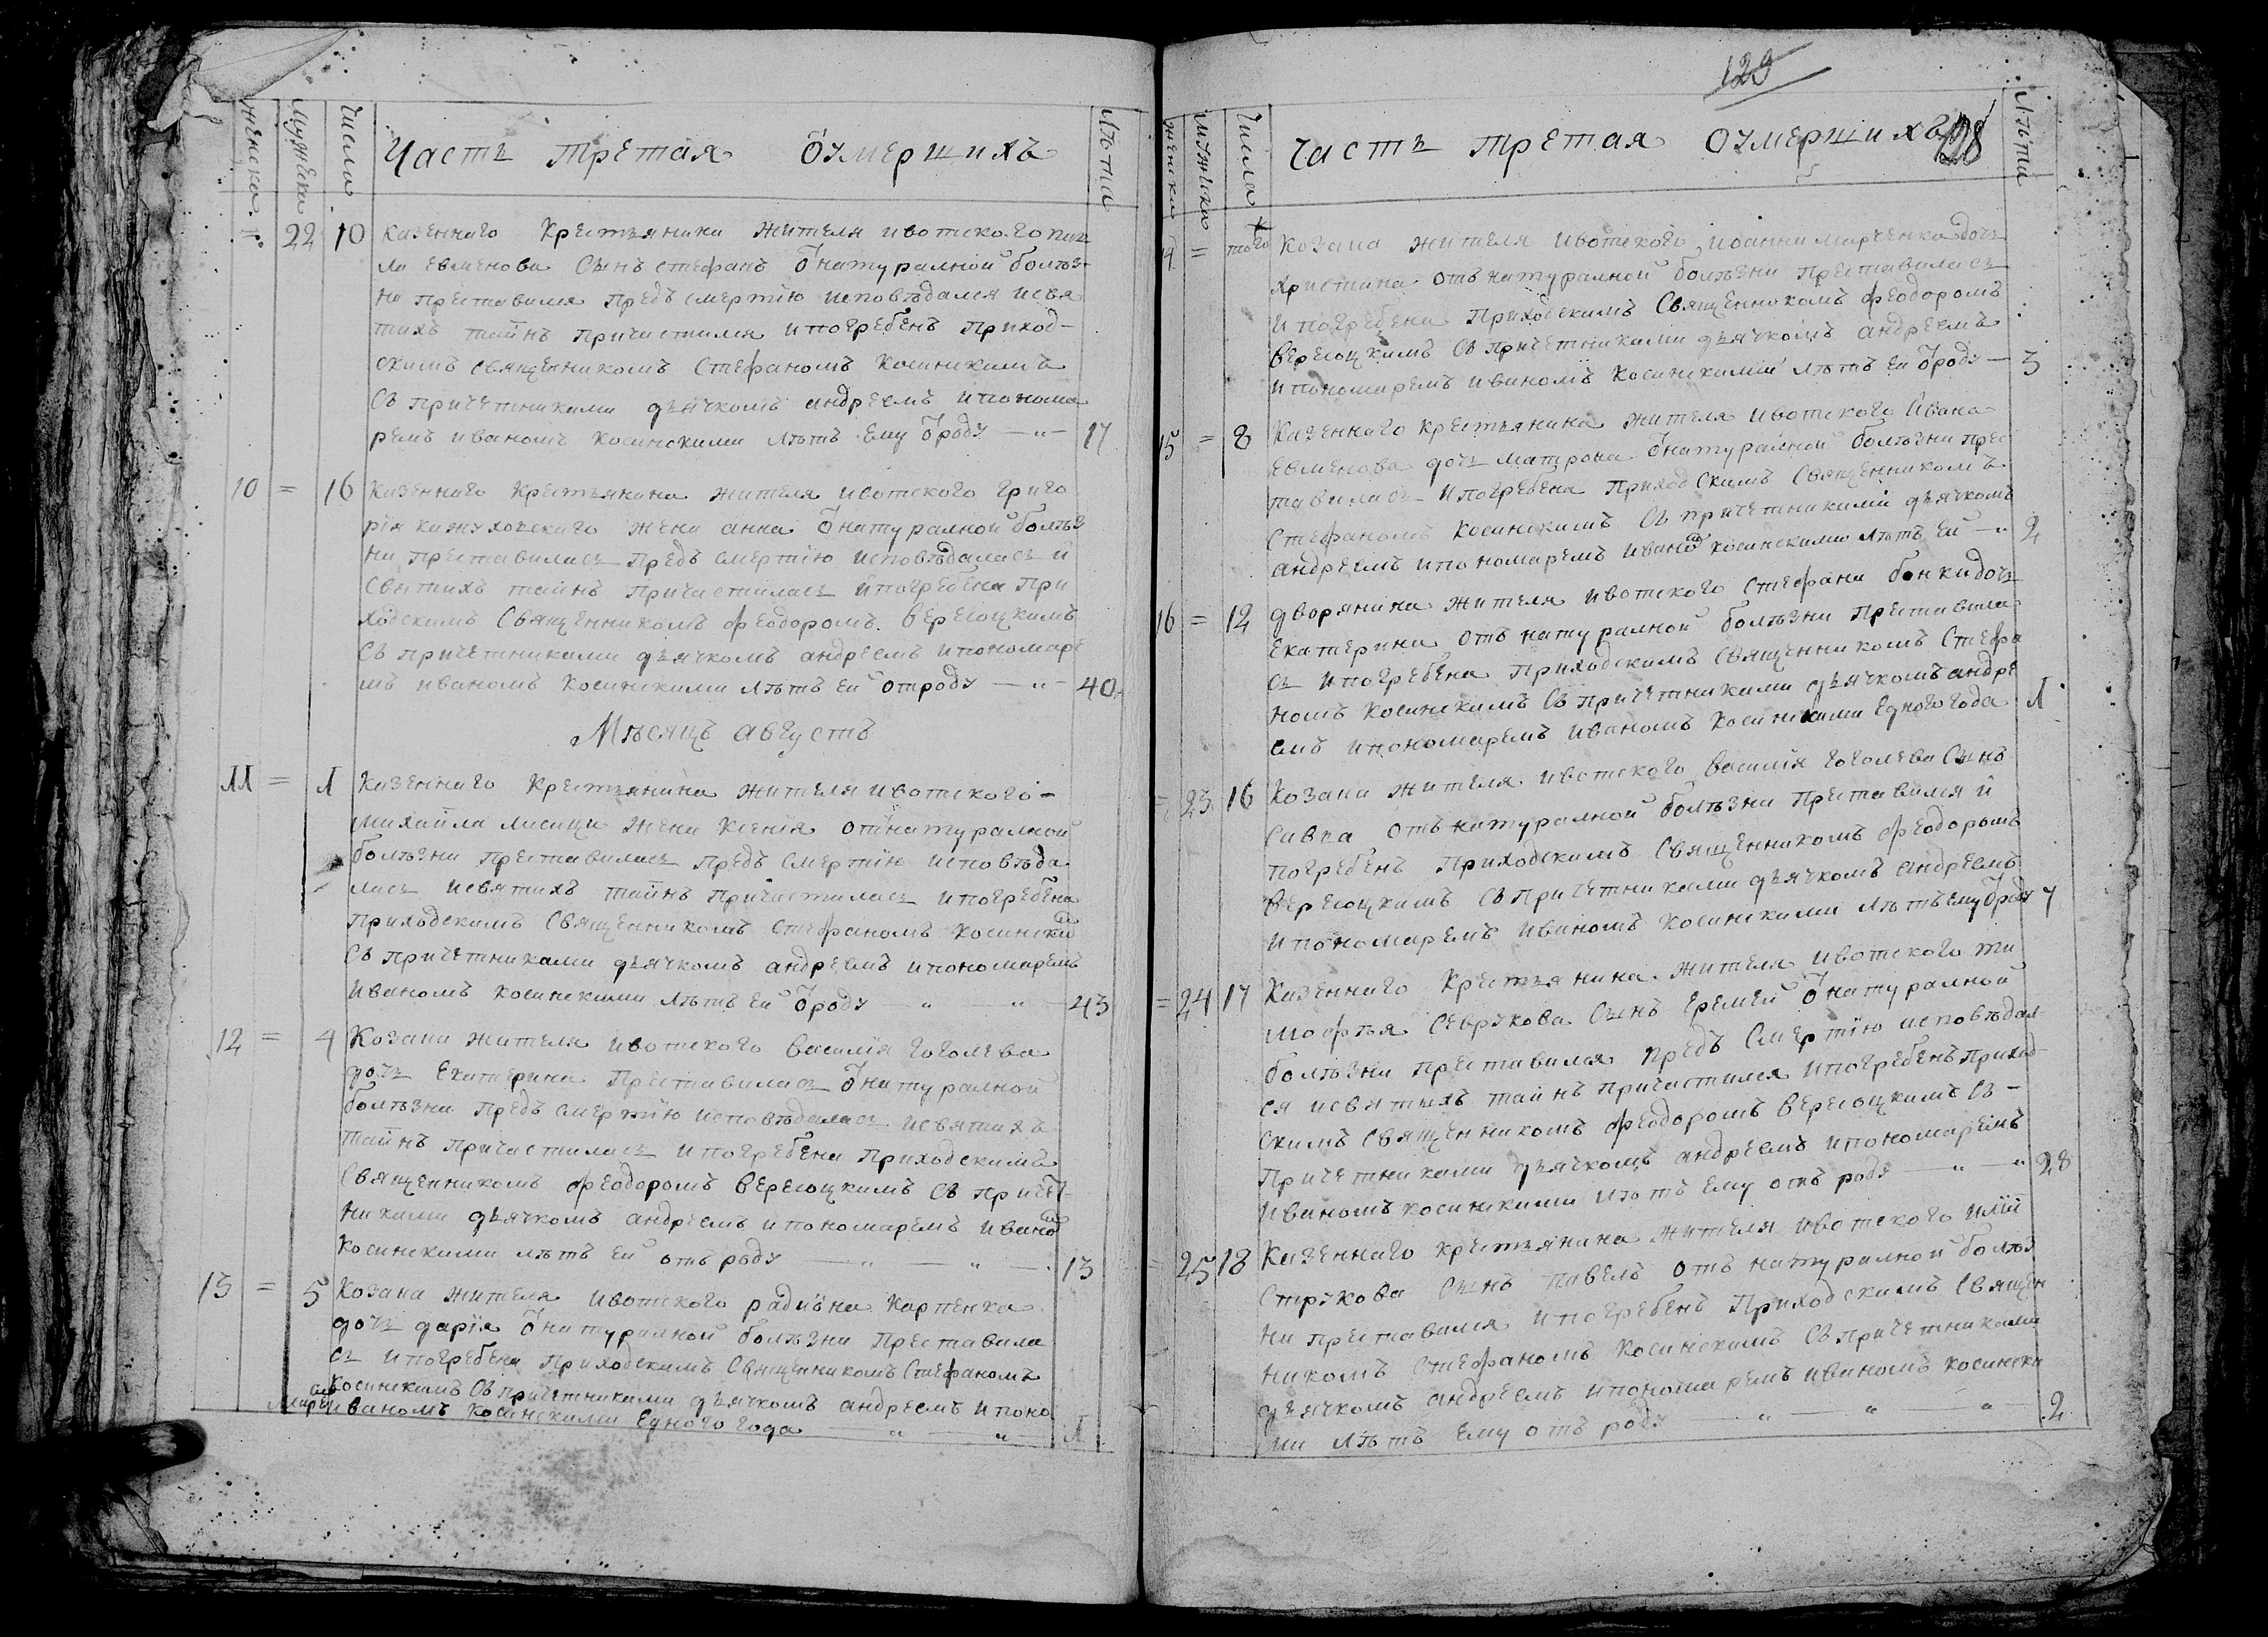 женска
мужеска
числа
Часть третая оумершихъ
лѣта
22 10 Казенного Крестьянина жителя ивотского
ла евменова Сынъ стефанъ ѿ натуралной болѣз-
ни преставился предъ смертїю исповѣдался исвя
тихъ тайнъ причастился и погребенъ приход-
скимъ священникомъ Стефаномъ Косинскимъ
Съ причетниками дьячкомъ андреемъ и понома
ремъ иваномъ косинскими лѣтъ ему ѿроду — „ — 17
10 = 16 Казенного крестьянина жителя ивотского григо
рїя жена анна ѿ натуралной болѣз
ни преставилась предъ смертїю исповѣдалась и
святихъ тайнъ причастилась и погребена при
ходскимъ Священникомъ феодоромъ Верегоцкимъ
Съ причетниками дьячкомъ андреемъ и пономаре
мъ иваномъ Косинскими лѣтъ ей отроду — „ — 40
Мѣсяцъ августъ
11 = 1 Казенного Крестьянина жителя ивотского -
михайла лисици жена ксенїя отъ натуралной
болѣзни преставилась предъ смертїю исповѣда
лась исвятихъ тайнъ причастилась и погребена
приходскимъ Священникомъ стефаномъ косински
Съ причетниками дьячкомъ андреемъ и пономаремъ
Иваномъ косинскими лѣтъ ей ѿроду — „ — „ — 43
12 = 4 Козака жителя ивотского василїя гоголева
дочь Екатерина Преставилась ѿ натуралной
болѣзни предъ смертїю исповѣдалась исвятихъ
тайнъ причастилась и погребена приходскимъ
Священникомъ феодоромъ верегоцкимъ съ причет-
никами дьячкомъ андреемъ и пономаремъ иваномъ
Косинскими лѣтъ ей отъ роду — „ — „ — 13
13 = 5 Козака жителя ивотского радиѡна карпенка
дочь дарїя ѿ натуралной болѣзни Преставила
сь и погребена приходскимъ Священникомъ Стефаномъ
косинскимъ Съ причетниками дьячкомъ андреемъ и поно
маремъ иваномъ косинскими Едного года — „ — „ — 1
129
женска
мужеска
числа
Часть третая оумершихъ
128
лѣта
= того Козака жителя ивотского иоанна марченка дочь
христина отъ натуралной болѣзни преставилась
и погребена приходскимъ Священникомъ феодоромъ
верегоцкимъ съ причетниками дьячкомъ андреемъ
и пономаремъ иваномъ Косинскими лѣтъ ей ѿроду — 3
15 = 8 Казенного крестьянина жителя ивотского Ивана
евменова дочь матрона ѿ натуралной болѣзни прес
тавилась и погребена приходскимъ Священникомъ
Стефаномъ косинскимъ съ причетниками дьячкомъ
андреемъ и пономаремъ иваномъ косинскими лѣтъ ей — „ 2
16 = 12 дворянина жителя ивотского стефана бонки дочь
екатерина отъ натуралной болѣзни преставила
сь и погребена приходскимъ священникомъ Стефа
номъ косинскимъ съ причетниками дьячкомъ андре
емъ и пономаремъ иваномъ косинскими Едного года 1
= 23 16 Козака жителя ивотского василїя гоголева Сынъ
Савва отъ натуралной болѣзни преставился и
погребенъ приходскимъ Священникомъ феодоромъ
верегоцкимъ съ причетниками дьячкомъ андреемъ
и пономаремъ иваномъ косинскими лѣтъ ему ѿроду 4
= 24 17 Казенного крестьянина жителя ивотского ти
мофѣя Севрукова Сынъ Еремей ѿ натуралной
болѣзни преставился предъ Смертїю исповѣдал
ся исвятыхъ тайнъ причастился и погребенъ приход-
скимъ священникомъ феодоромъ верегоцкимъ съ -
причетниками дьячкомъ андреемъ и пономаремъ
иваномъ косинскими лѣтъ ему отъ роду — „ — „ 28
= 25 18 Казенного крестьянина жителя ивотского
Струкова Сынъ павелъ отъ натуралной болѣз
ни преставился и погребенъ Приходскимъ Священ
никомъ стефаномъ косинскимъ съ причетниками
дьячкомъ андреемъ и пономаремъ иваномъ косински
ми лѣтъ ему отъ роду — „ — „ — „ 2